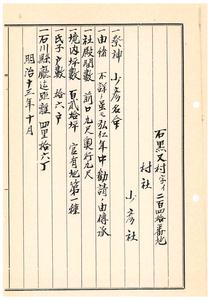 石黒又村字イ二百四拾番地
村社
少彦社
一祭神 少彦名命
一由緒 不詳ト雖モ弘仁年中勧請ノ由傳承
一社殿間数 前口九尺奥行九尺
一境内坪数 百弐拾坪 官有地第一種
一氏子戸数 拾六戸
一石川縣廳迄距離 四里拾六丁
明治十三年十月